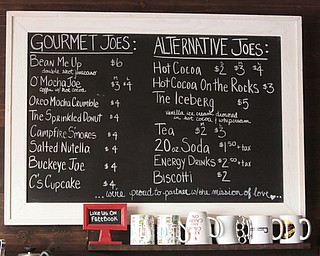 GOURMET JOES:
BEAN ME UP $6
double shot/
O'MOCHA JOE M $3 L $4
coffee w/ hot cocoa
OREO MOCHA CRUMBLE $4
THE SPRINKLED DONUT $4
CAMPFIRE S'MORES $4
SALTED NUTELLA $4
BUCKEYE JOE $4
C'S CUPCAKE $4
ALTERNATIVE JOES:
HOT COCOA S $2 M $3 L $4
HOT COCOA ON THE ROCKS $3
THE ICEBERG $5
vanilla ice cream drowned
in hot cocoa / whip cream
TEA M $2 L $3
20oz SODA $1.50 + tax
ENERGY DRINKS $2.00 + tax
BISCOTTI $2
...we're proud to partner w/ the mission of love...
LIKE US ON
FACEBOOK